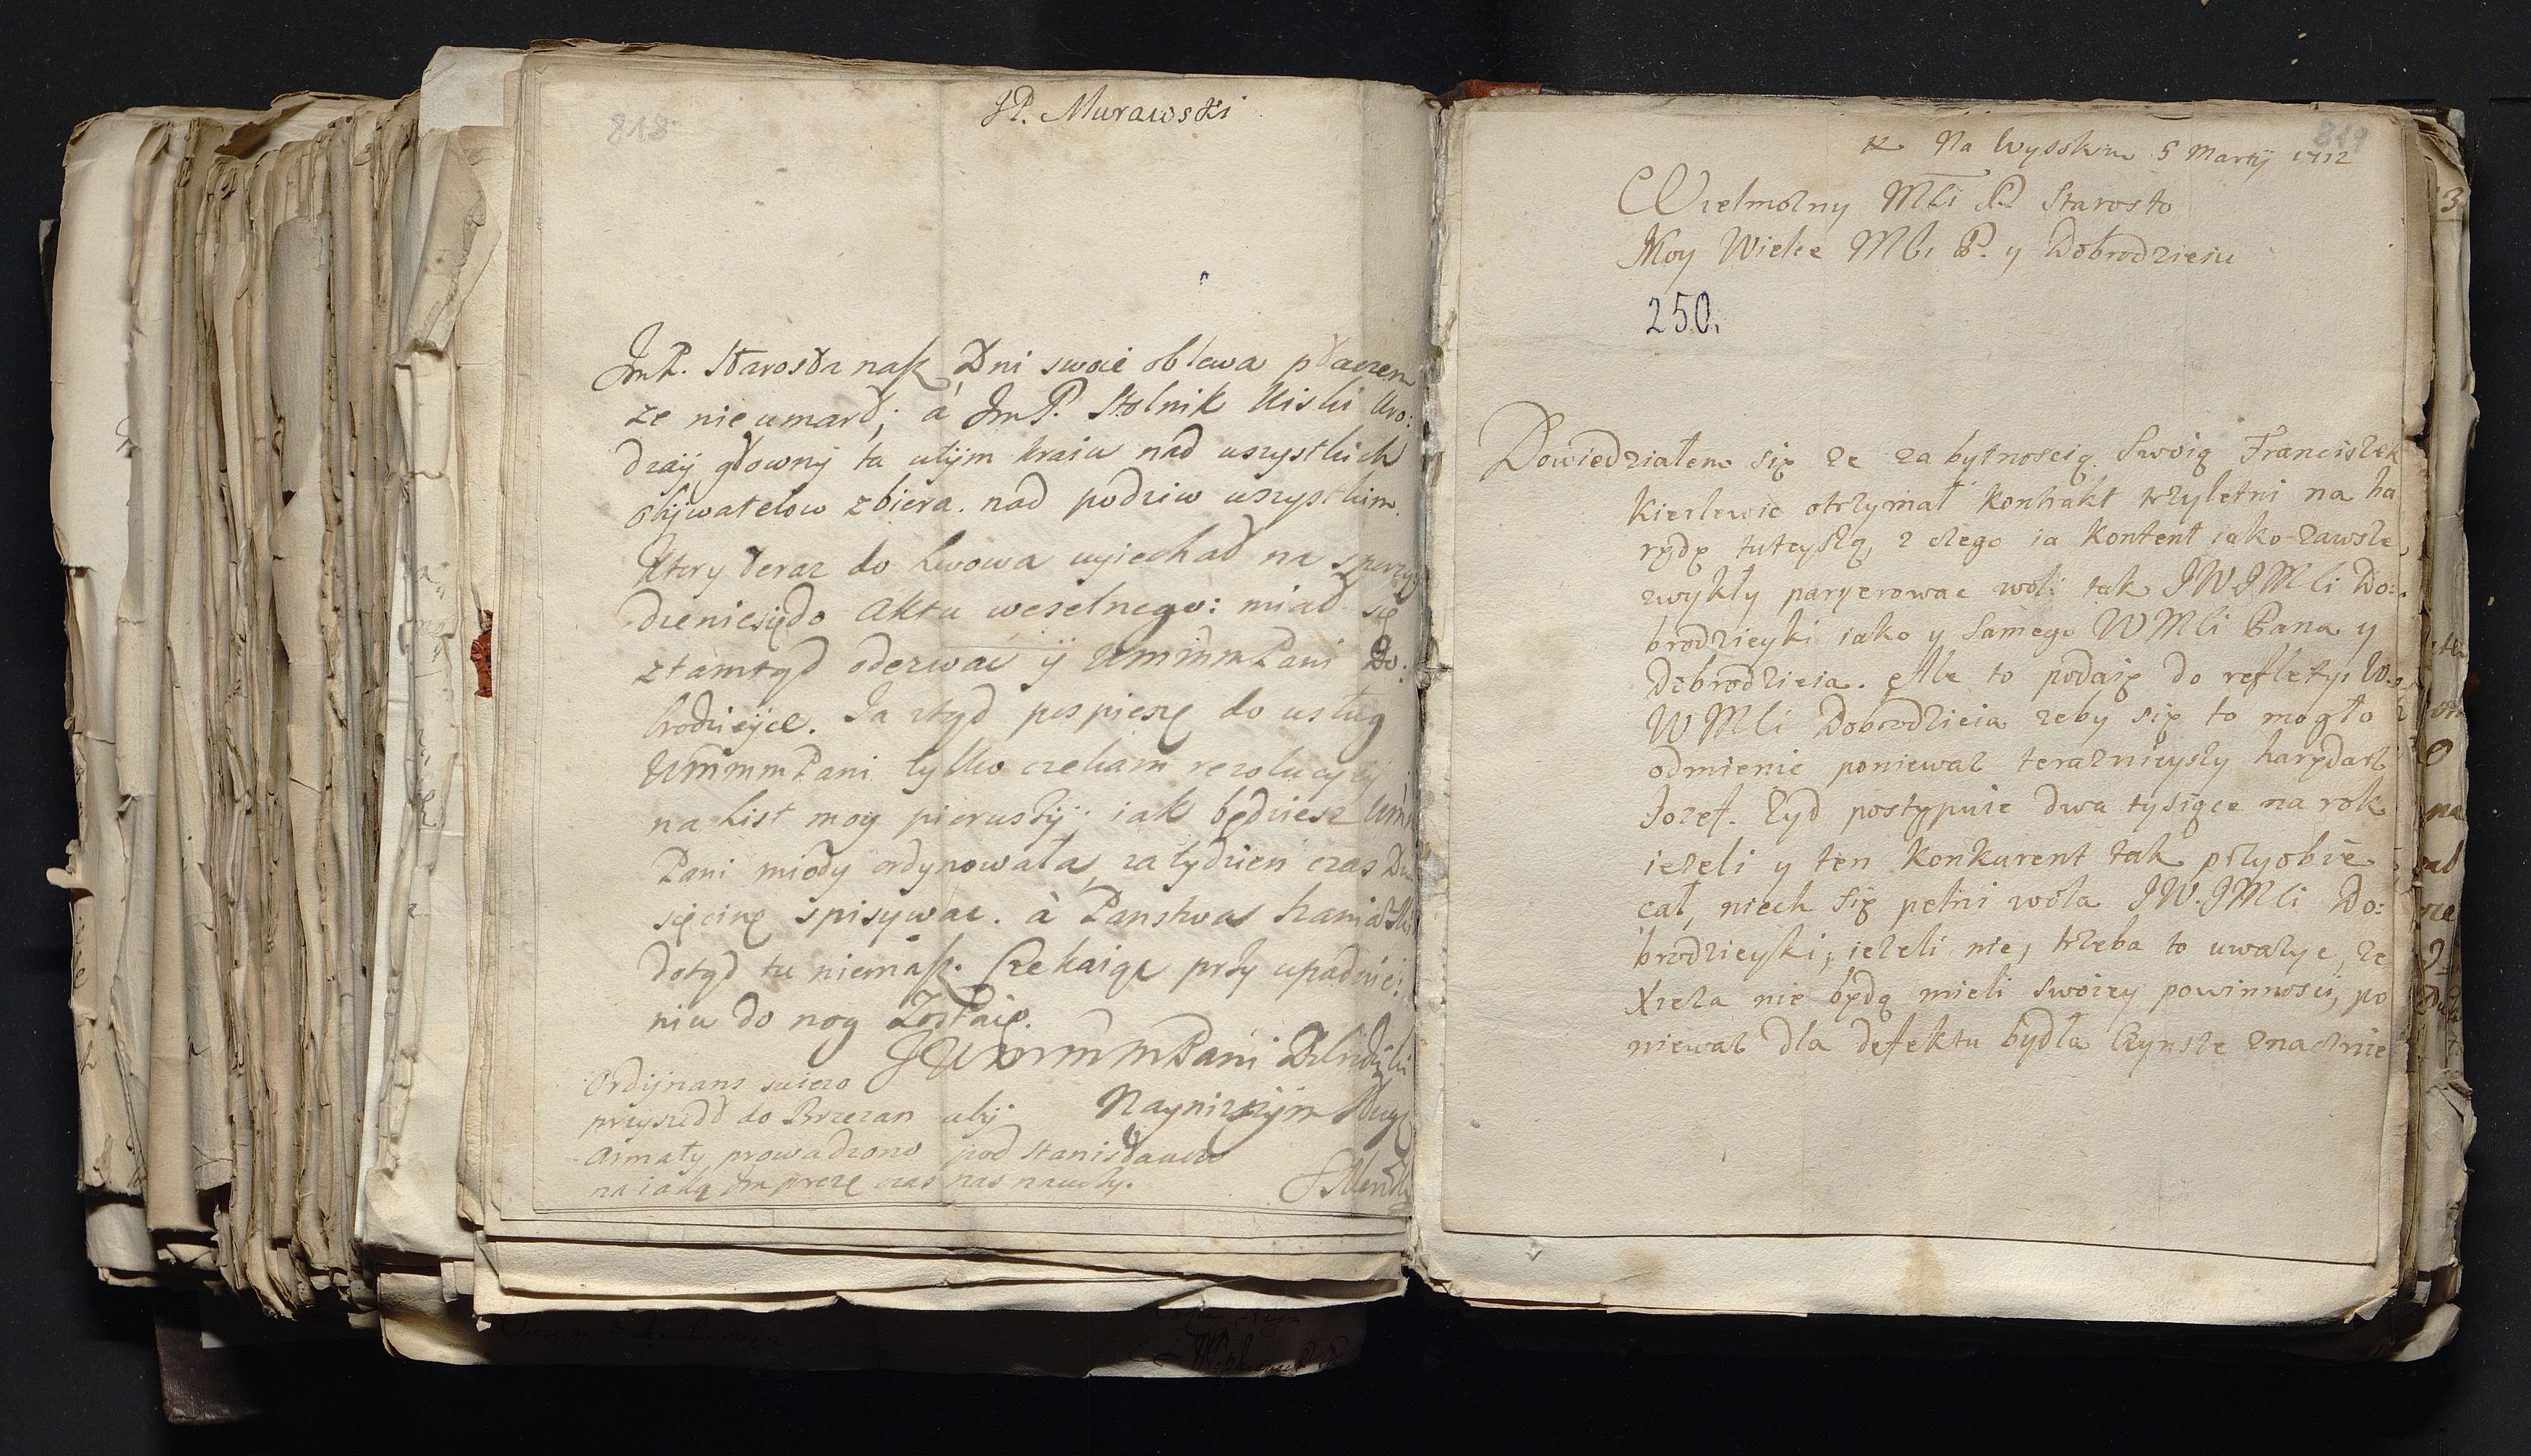 818.
JP. Murawski
JmP. Starosta nasz Dni swoie oblewa płaczem
ze nie umarł; á JmP. Stolnik Uro:
dzaÿ głowny tu wtÿm kraiu nad wszystkich
Obÿwatelow zbiera. nad podziw wszystkim.
Ktory teraz do Lwowa wyiechał na
do Aktu weselnego: miał się
ztamtąd odezwać ÿ WmmmPani Do:
brodzieÿce. Ja ztąd pospieszę do usług
WmmmPani tylko czekam rezolucyi
na List moy pierwszÿ; iak będziesz Wm
Pani miody ordynowała, za tydzien czas Dzie
sięcinę spisywac. à Panstwa
dotąd tu niemasz. Czekaiąc przy upadnie:
niu do nog Zostaię.
JWmmmPani Dobrodziki
Ordÿnans swiezo
przyszedł do Brzezan abÿ Nayniszÿm Sługą
Armaty prowadzono pod Stanisławow
na iaką Imprezę czas nas nauczy.
819
Na Wysokim 5 Martÿ 1712
Wielmozny Mści P. Starosto
Moy Wielce Mści P. y Dobrodzieiu
250.
Dowiedziałem się ze za bytnoscią Swoią Franciszek
Kierlewic otrzymał Kontrakt trzyletni na ha
rędę tuteyszą, z czego ia Kontent iako zawsze
zwykły paryerowac woli tak JWJMści Do:
brodzieyki iako y Samego WMści Pana y
Dobrodzieia. Ale to podaię do reflexyi
WMści Dobrodzieia zeby się to mogło
odmienic poniewaz teraznieyszy harędarz
Jozef Zyd postępuie dwa tysiące na rok
iezeli y ten Konkurent tak przyobie
cał, niech się pełni wola JW.JMści Do:
brodzieyki, iezeli nie, trzeba to uwazyc, ze
Xieza nie będą mieli swoiey powinnosci, po
niewaz dla defektu bydła Czynsze znacznie